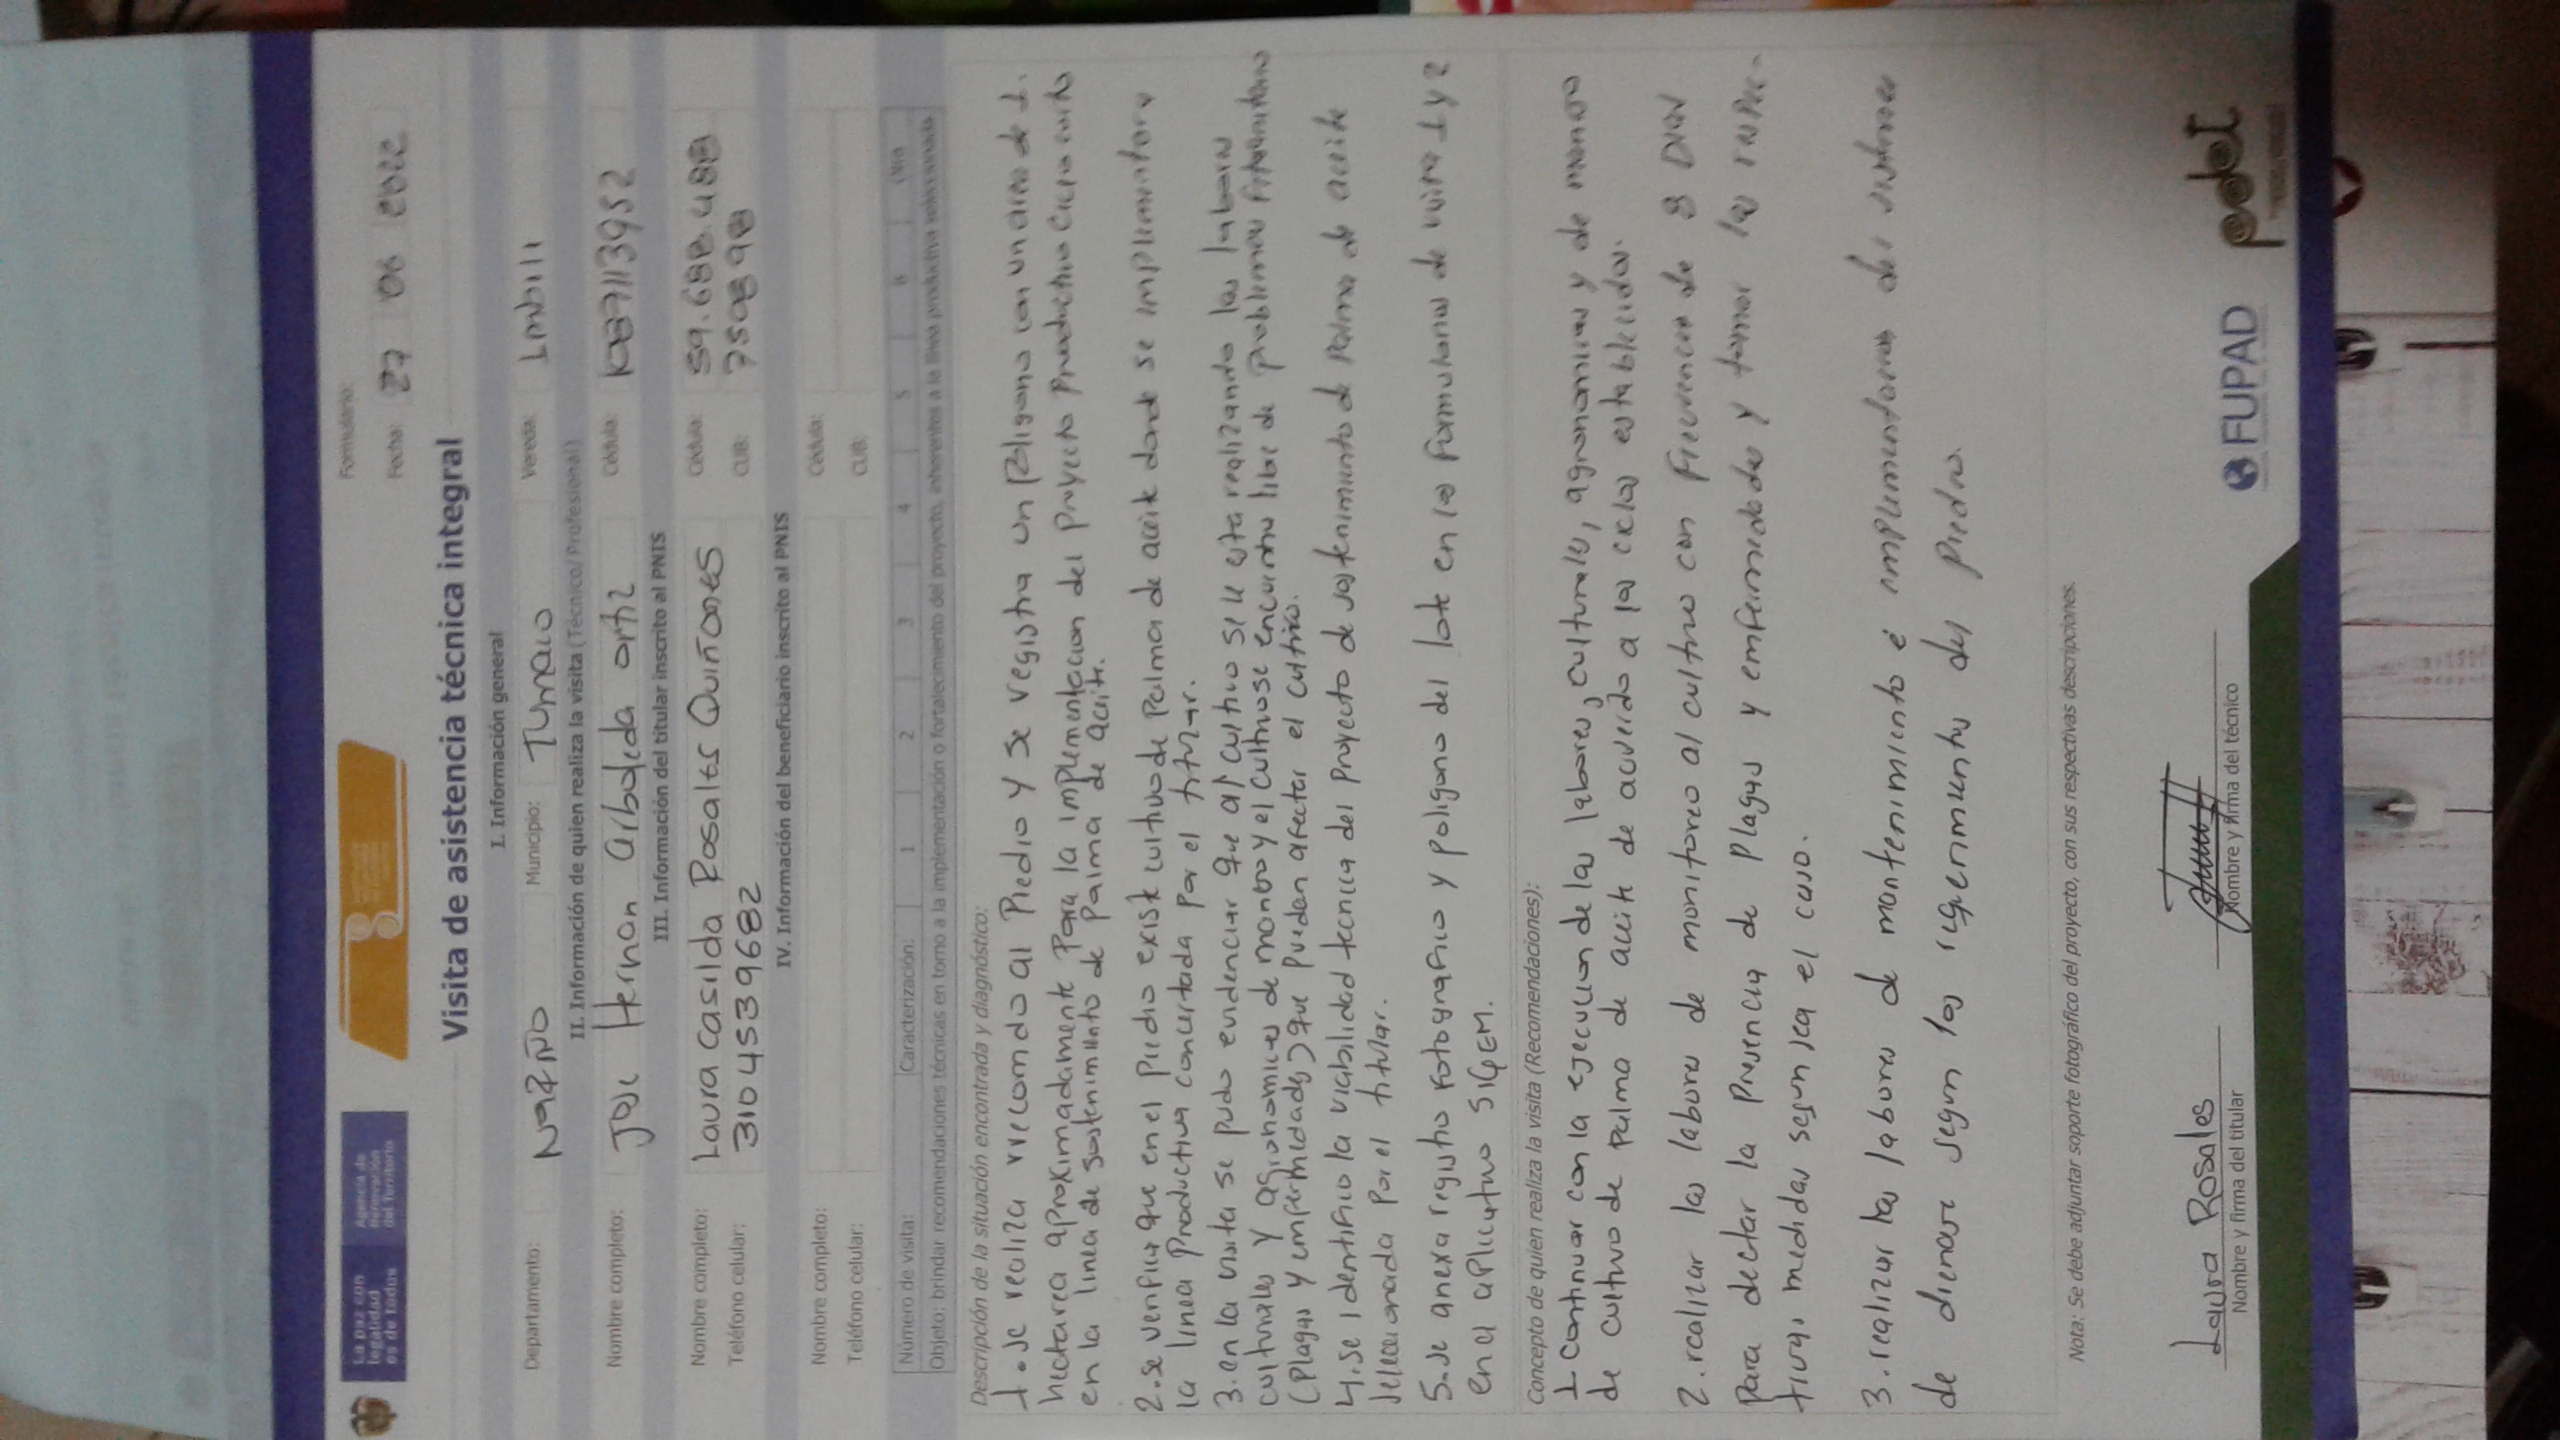 La paz con legalidad es de todos
Agencia de Renovación del Territorio
Formulario:
Fecha: 27 06 2022
Visita de asistencia técnica integral
I. Información general
Departamento: Nariño Municipio: Tumaco Vereda: Imbili
II. Información de quien realiza la visita (Técnico/Profesional)
Nombre completo: Jose Hernan arboleda ortiz Cédula: 1087113952
III. Información del titular inscrito al PNIS
Nombre completo: Laura Casilda Rosales Quiñones Cédula: 59.688.488
Teléfono celular: 3104539682 CUB:
IV. Información del beneficiario inscrito al PNIS
Nombre completo: Cédula:
Teléfono celular: CUB:
Número de visita: Caracterización: 1 2 3 4 5 6 Otra
Objeto: brindar recomendaciones técnicas en torno a la implementación o fortalecimiento del proyecto, inherentes a la línea productiva seleccionada
Descripción de la situación encontrada y diagnóstico:
1. se realiza recorrido al Predio y se registra un Poligono con un area de 1.
hectarea aproximadamente Para la implementacion del Proyecto Productivo ciclo corto
en la linea de sostenimiento de Palma de aceite.
2. se verifica que en el Predio existe cultivo de Palma de aceite donde se implementara
la linea Productiva concertada por el titular.
3. en la visita se pudo evidenciar que al cultivo se le esta realizando las labores
culturales y agronomicas de manejo y el cultivo se encuentra libre de problemas fitosanitarios
(Plagas y enfermedades) que puedan afectar el cultivo.
4. se identifico la viabilidad tecnica del Proyecto de sostenimiento de Palma de aceite
seleccionada por el titular.
5. se anexa registro fotografico y poligono del lote en los formularios de visita 1 y 2
en el aplicativo SIGEM.
Concepto de quien realiza la visita (Recomendaciones):
1. continuar con la ejecucion de las labores, culturales, agronomicas y de manejo
de cultivo de palma de aceite de acuerdo a los ciclos establecidos.
2. realizar las labores de monitoreo al cultivo con frecuencia de 8 Dias
para dectar la Presencia de Plagas y enfermedades y tomar las respec-
tivas medidas segun sea el caso.
3. realizar las labores de mantenimiento e implementaran del sistema
de drenare segun los requerimientos del Predio.
Nota: Se debe adjuntar soporte fotográfico del proyecto, con sus respectivas descripciones.
Laura Rosales
Nombre y firma del titular Nombre y firma del técnico
FUPAD
pdet